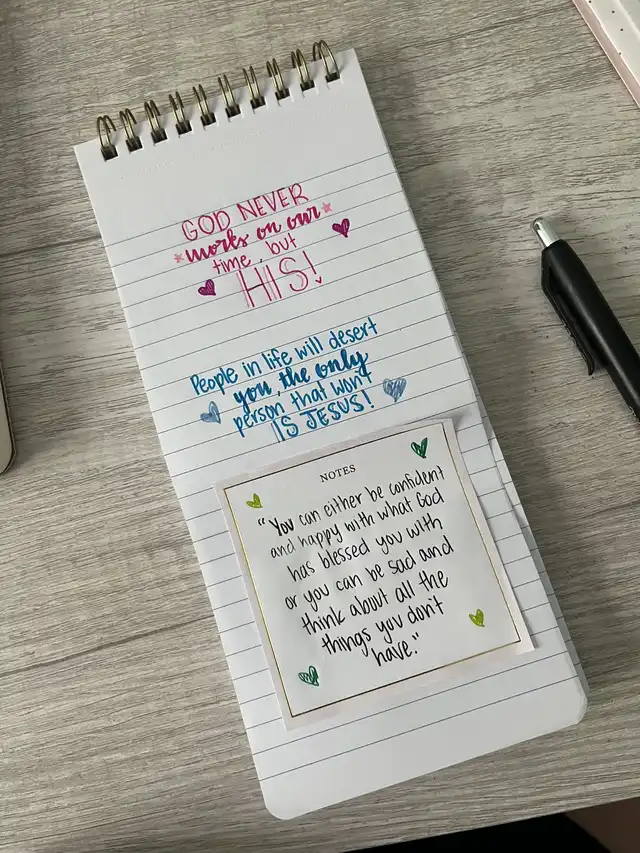 GOD NEVER
works on our
time, but
HIS!
People in life will desert
you, the only
person that won't
IS JESUS!
NOTES
"You can either be confident
and happy with what God
has blessed you with
or you can be sad and
think about all the
things you don't
have."